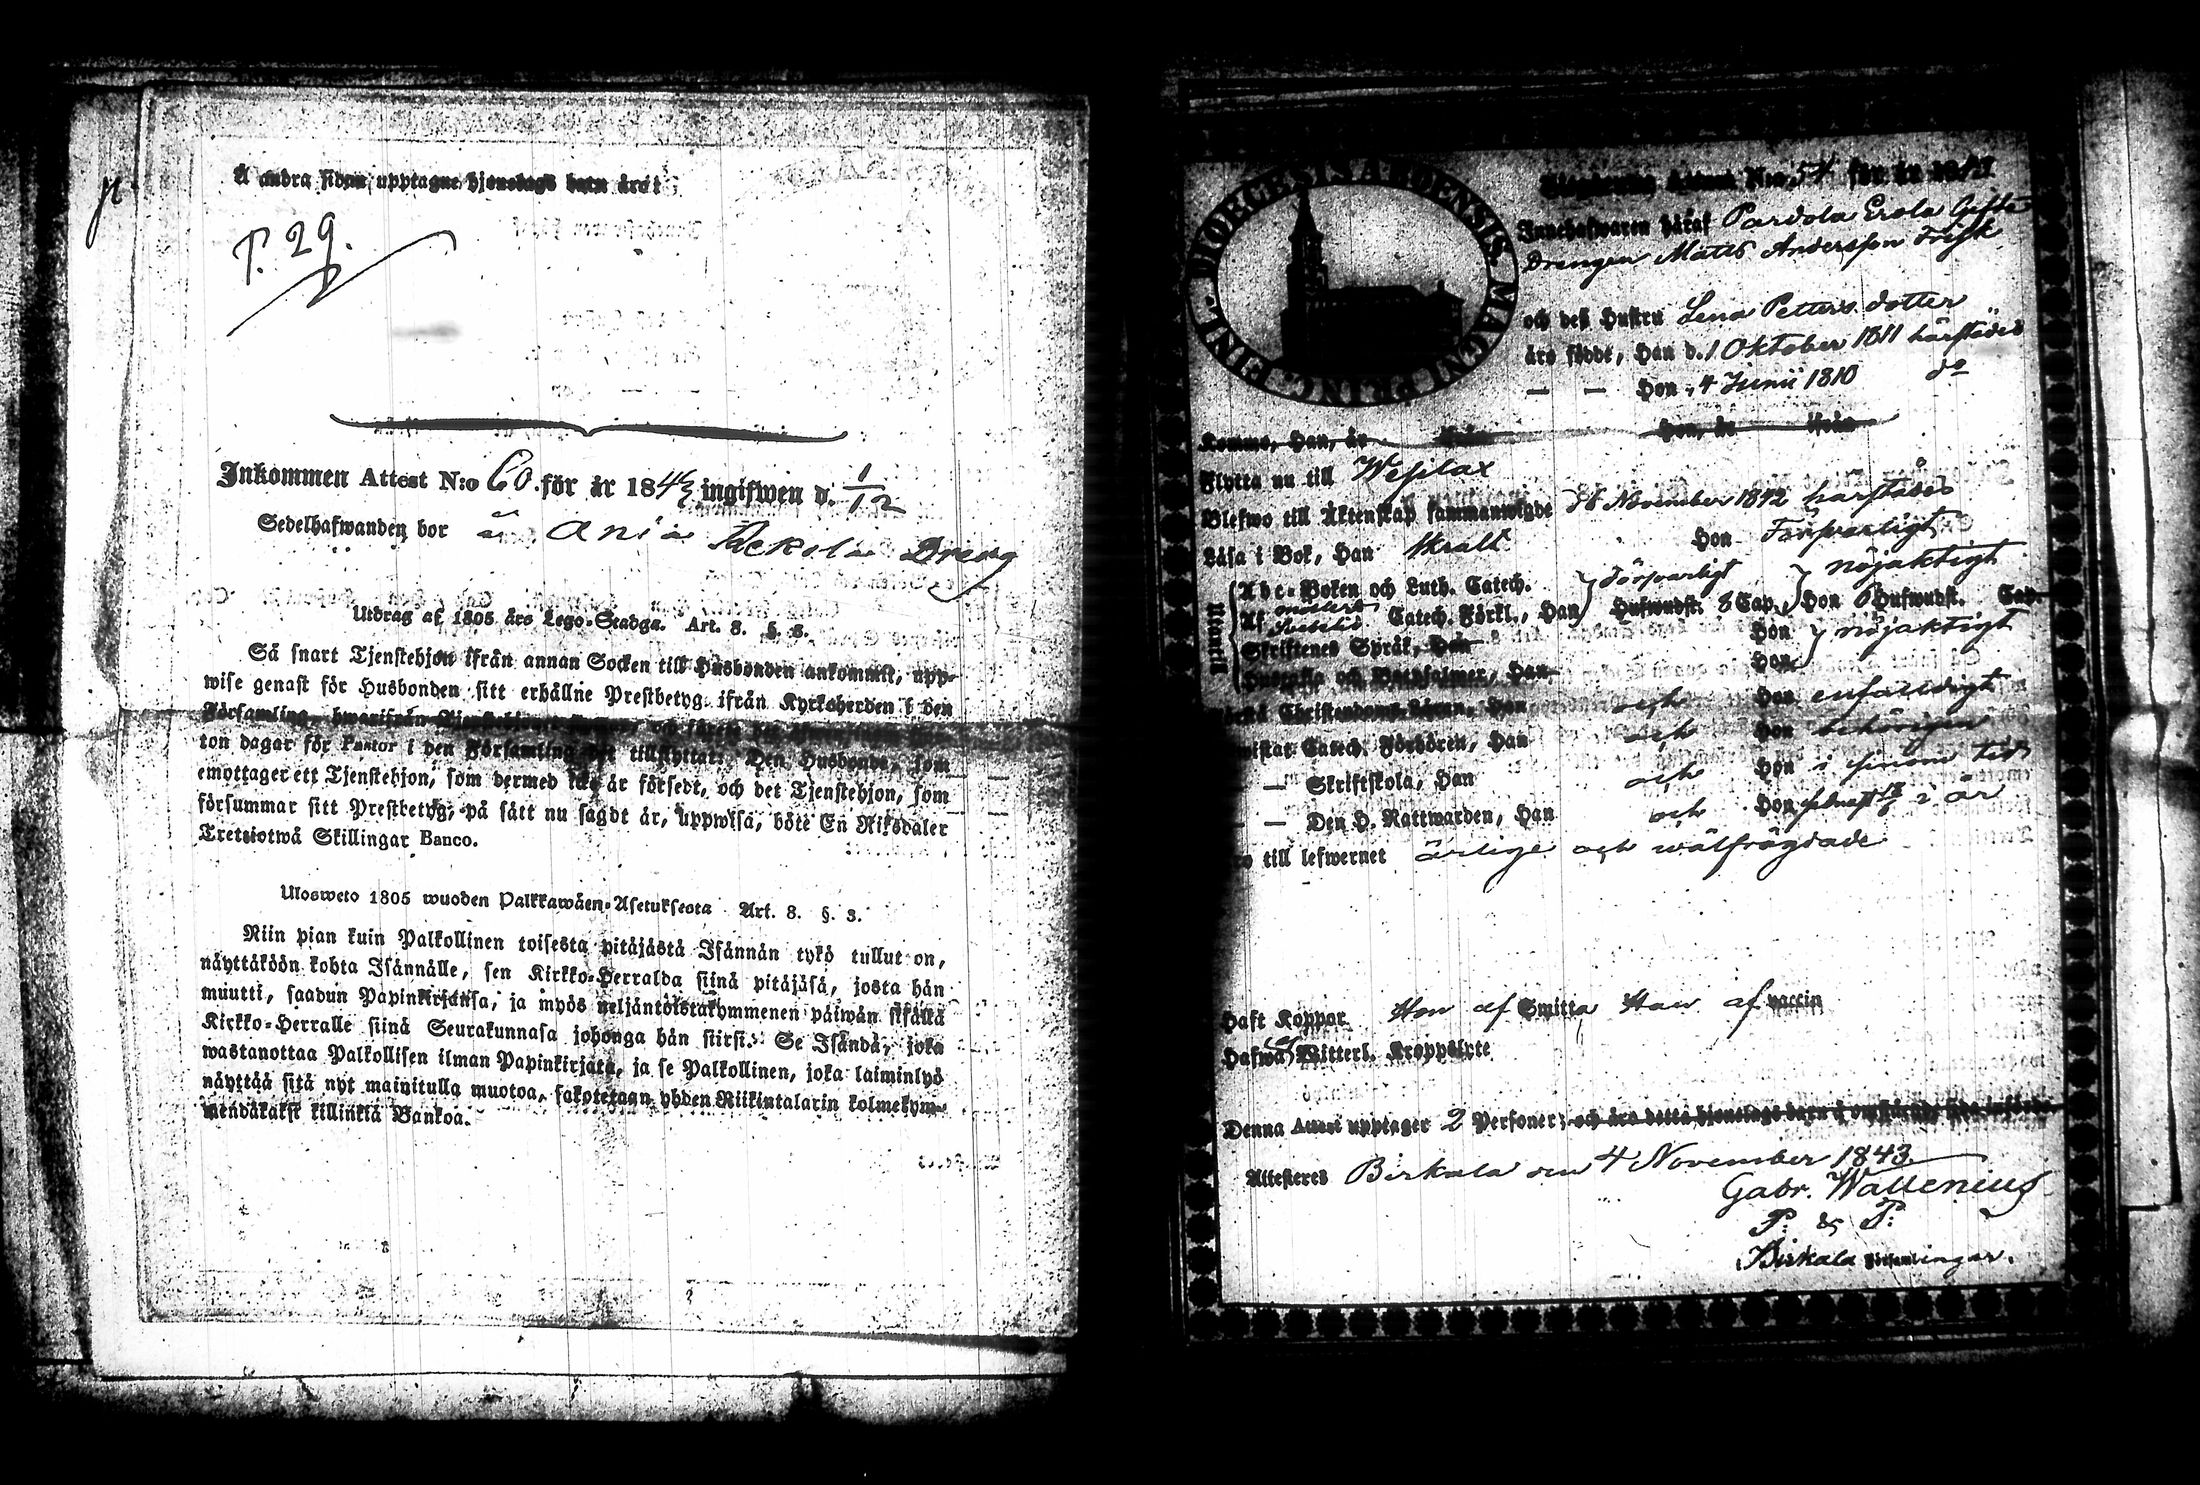 Å andra sidan upptagne hjonelags barn äro:
P. 29.
Inkommen Attest N:o 60 för år 184 ingifwen d. 1/12
Sedelhafwanden bor å Ania Dreng
Utdrag af 1805 års Lego-Stadga. Art. 8. §. 3.
Så snart Tjenstehjon ifrån annan Socken till Husbonden ankommit, upp-
wise genast för Husbonden sitt erhållne Prestbetyg ifrån Kyrkoherden i den
Församling, hwarifrån
ton dagar för Pastor i den Församling tillflyttat. Den Husbonde, som
emottager ett Tjenstehjon, som dermed icke är försedt, och det Tjenstehjon, som
försummar sitt Prestbetyg, på sätt nu sagdt är, uppwisa, böte En Riksdaler
Tretiotwå Skillingar Banco.
Ulosweto 1805 wuoden Palkkawäen-Asetuksesta Art. 8. §. 3.
Niin pian kuin Palkollinen toisesta pitäjästä Isännän tykö tullut on,
näyttäköön kohta Isännälle, sen Kirkko-Herralda siinä pitäjäsä, josta hän
muutti, saadun Papinkirjansa, ja myös neljäntöistakymmenen päiwän sisällä
Kirkko-Herralle siinä Seurakunnasa johonga hän siirsi. Se Isändä, joka
wastanottaa Palkollisen ilman Papinkirjata, ja se Palkollinen, joka laiminlyö
näyttää sitä nyt mainitulla muotoa, sakotetaan yhden Riikintalarin kolmekym-
mendäkaksi killinkiä Bankoa.
FINL. DIOECESIS ABOENSIS. MAGNI PRINC.
Attest N:o 54 för år 1843
Innehafwaren häraf Pardola Erola Gifte
Drengen Matts Andersson Frisk
och dess Hustru Lena Petters dotter
äro födde, Han d. 1 Oktober 1811 härstädes
— — Hon " 4 Junii 1810 do
Komne, Han, år ifrån Hon, år ifrån
Flytta nu till Wesilax
Blefwo till Äktenskap sammanwigde d November 1842 härstädes
Läsa i Bok, Han Hon Försvarligt
Utantill
Abc-Boken och Luth. Catech. försvarligt nöjaktigt
Af Svebelii Catech. Förkl., Han Hufwudst. 8 Cap. Hon 6 Hufwudst. Cap.
Skriftenes Språk, Han Hon nöjaktigt
Hustafla och Botpsalmer, Han Hon
Christendoms-Läran, Han och Hon enfaldigt
Catech. Förhören, Han och Hon behörigen
— Skriftskola, Han och Hon i sinom tid
— — Den H. Nattwarden, Han och Hon senast i år
till lefwernet ärlige och wälfrägdade
Haft Koppor Hon af Smitta Han af vaccin
Hafwa Witterl. Kroppslyte
Denna Attest upptager 2 Personer; och äro detta hjonelags barn å omstående sida införde
Attesteres Birkala den 4 November 1843.
Gabr. Wallenius
P: & P:
Birkala Församlingar.